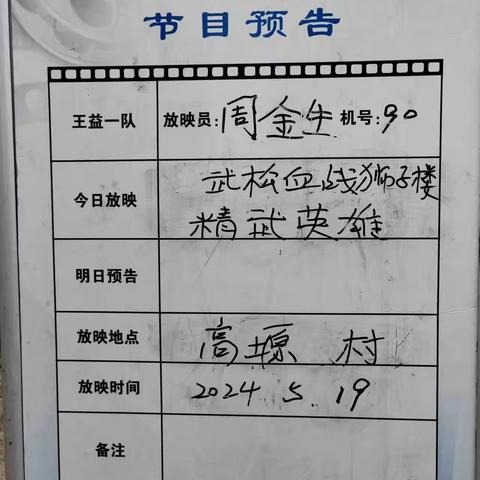 节目预告
王益一队 放映员:周金生 机号:90
今日放映 武松血战狮子楼
精武英雄
明日预告
放映地点 高塬村
放映时间 2024.5.19
备注